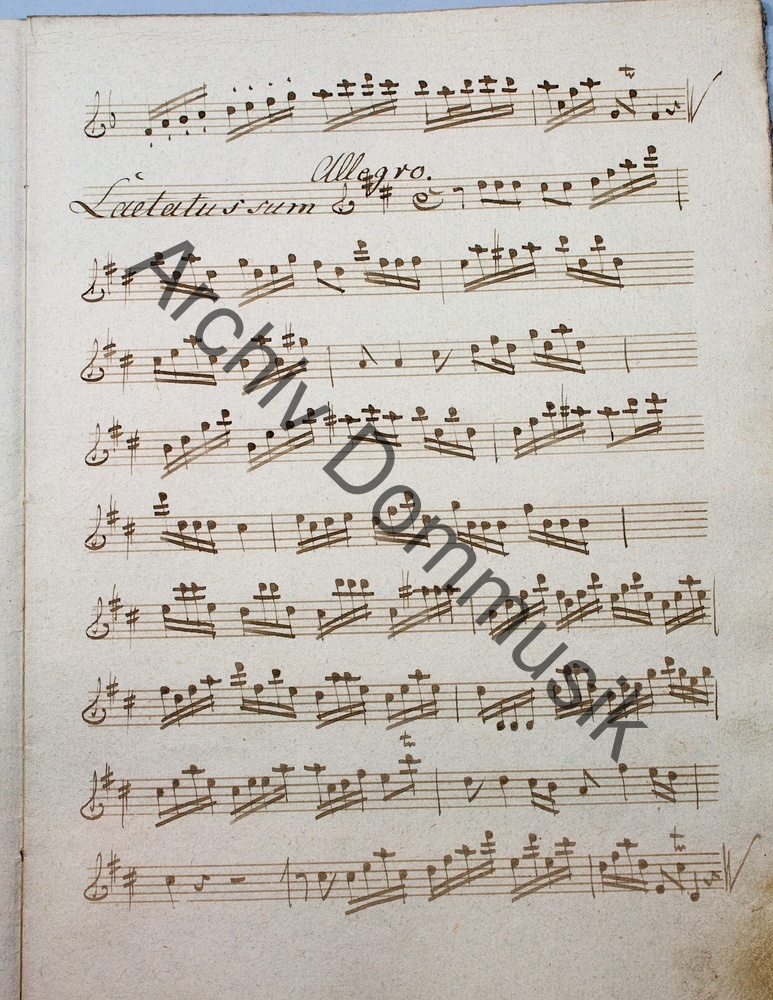 tr
Allegro.
Laetatus sum
Archiv Dommusik
tr
tr